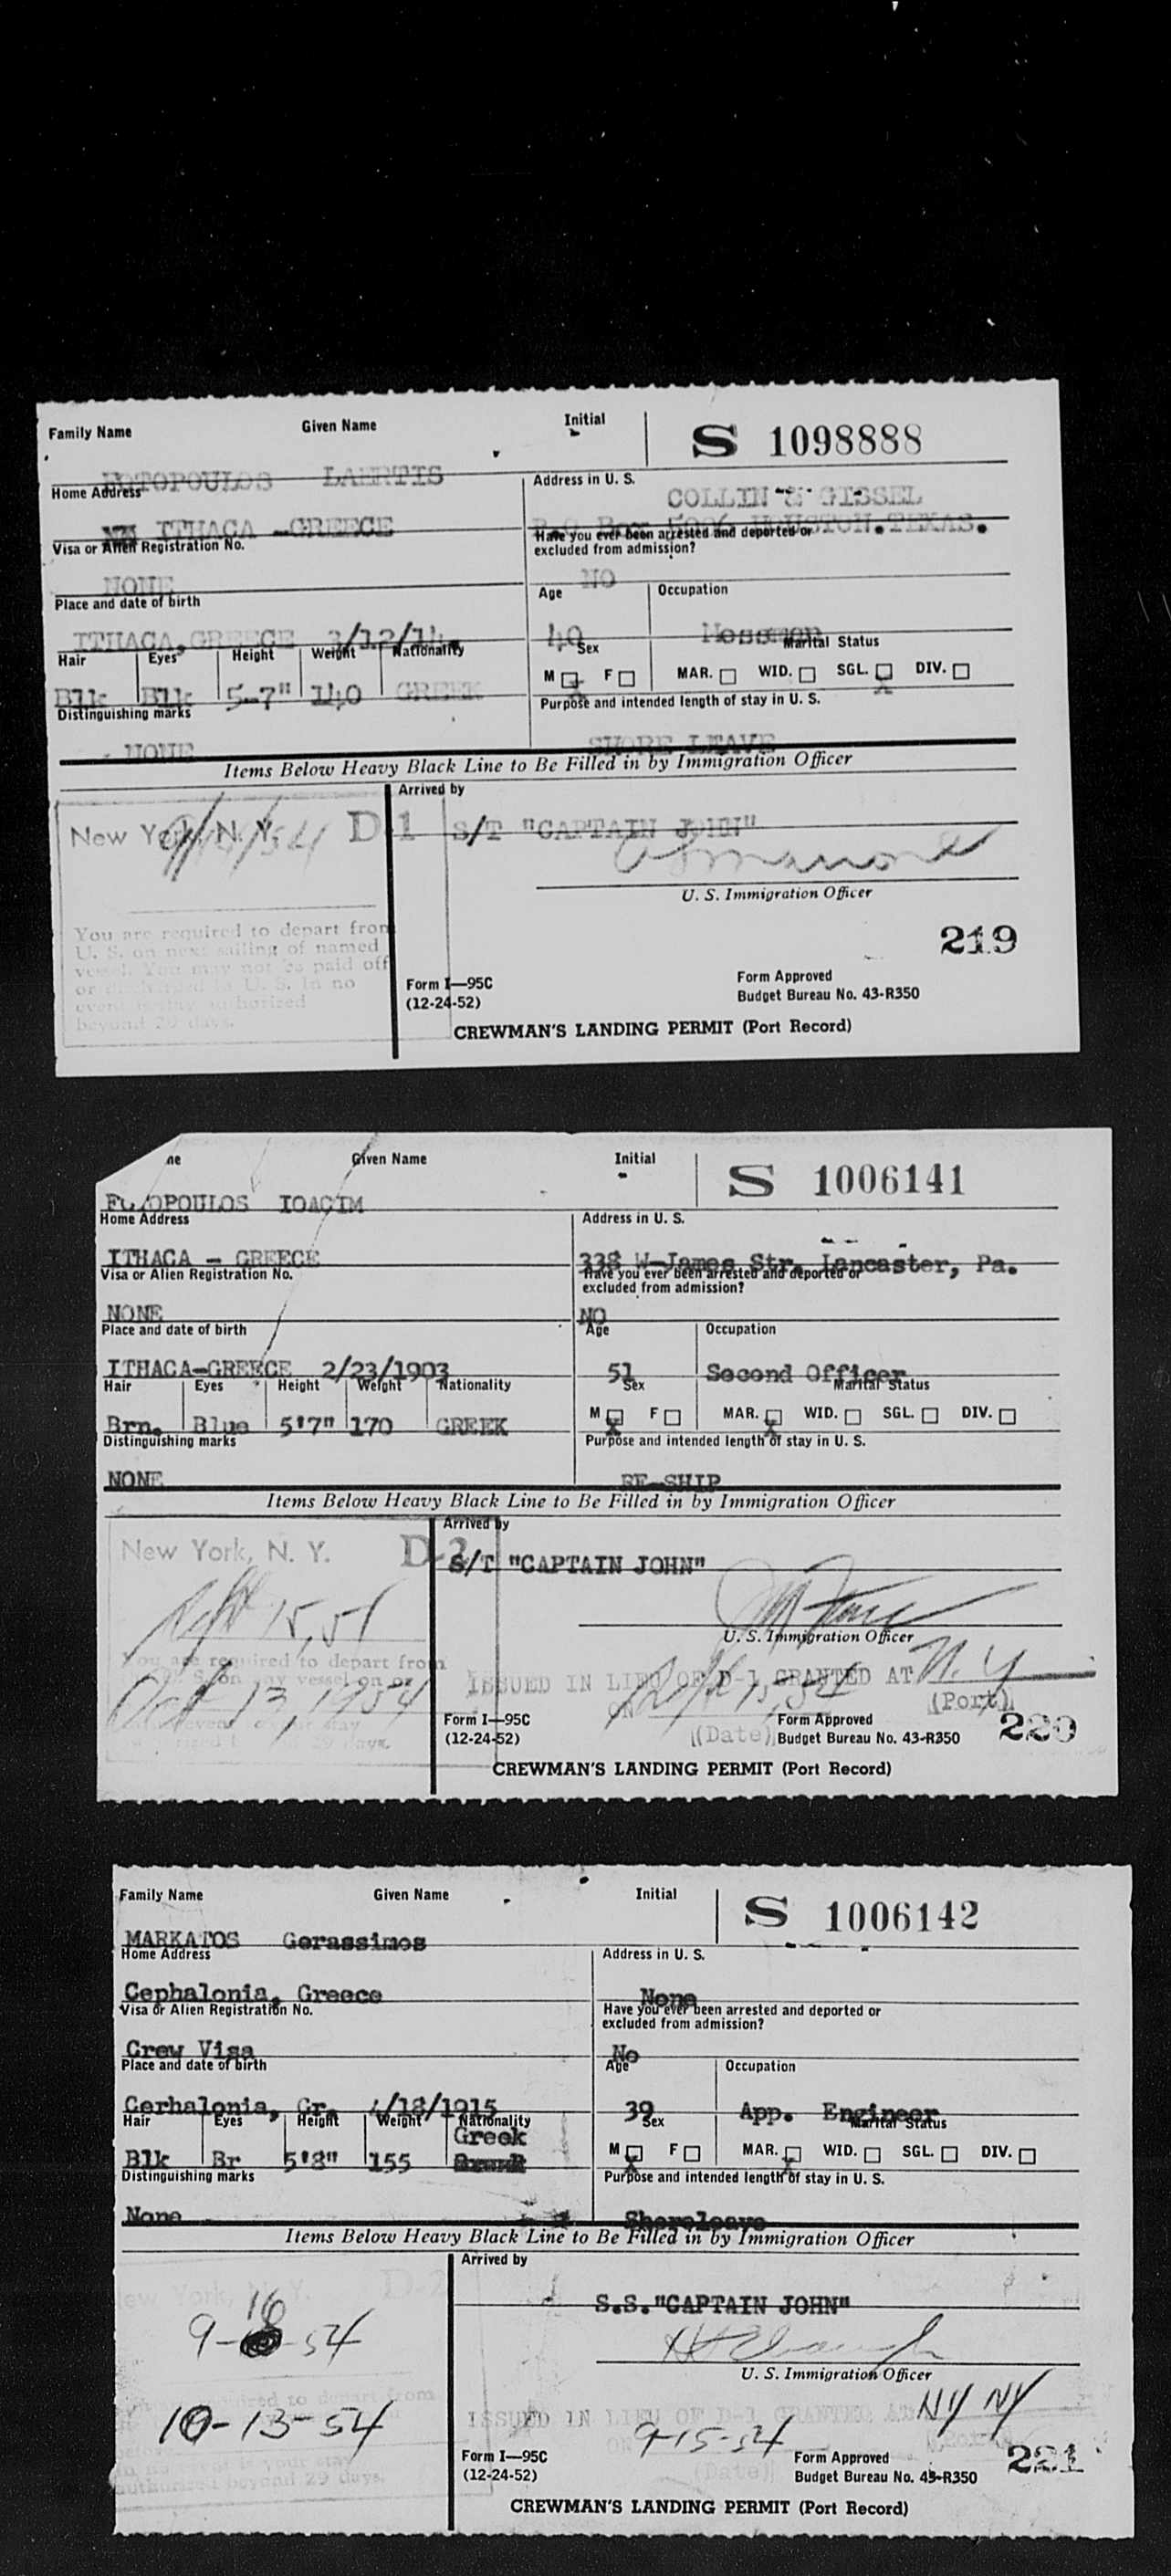 Family Name Given Name Initial S 1098888
FOTOPOULOS LAERTIS
Home Address Address in U. S.
COLLIN & GISSEL
ITHACA -GREECE P.O Box 5006 HOUSTON.TEXAS.
Visa or Alien Registration No. Have you ever been arrested and deported or excluded from admission?
NONE NO
Place and date of birth Age Occupation
ITHACA,GREECE 3/12/14. 40 Messman
Hair Eyes Height Weight Nationality Sex Marital Status
M F MAR. WID. SGL. DIV.
Blk Blk 5-7" 140 GREEK X X
Distinguishing marks Purpose and intended length of stay in U. S.
- NONE SHORE LEAVE
Items Below Heavy Black Line to Be Filled in by Immigration Officer
Arrived by
New York, N. Y. D-1 S/T "CAPTAIN JOHN"
U. S. Immigration Officer
You are required to depart from
U. S. on next sailing of named
vessel. You may not be paid off
or discharged in U. S. In no
event is stay authorized
beyond 29 days.
219
Form I—95C Form Approved
(12-24-52) Budget Bureau No. 43-R350
CREWMAN'S LANDING PERMIT (Port Record)
me Given Name Initial S 1006141
FOTOPOULOS IOACIM
Home Address Address in U. S.
ITHACA - GREECE 338 W-James Str. Lancaster, Pa.
Visa or Alien Registration No. Have you ever been arrested and deported or excluded from admission?
NONE NO
Place and date of birth Age Occupation
ITHACA-GREECE 2/23/1903 51 Second Officer
Hair Eyes Height Weight Nationality Sex Marital Status
M F MAR. WID. SGL. DIV.
Brn. Blue 5'7" 170 GREEK X X
Distinguishing marks Purpose and intended length of stay in U. S.
NONE RE-SHIP
Items Below Heavy Black Line to Be Filled in by Immigration Officer
Arrived by
New York, N. Y. D-2 S/T "CAPTAIN JOHN"
Sept 15, 54
U. S. Immigration Officer
You are required to depart from
vessel on or
Oct 13, 1954
ISSUED IN LIEU OF D-1 GRANTED AT N.Y
ON Sept 15, 54 (Port)
(Date)
Form I—95C Form Approved
(12-24-52) Budget Bureau No. 43-R350
220
CREWMAN'S LANDING PERMIT (Port Record)
Family Name Given Name Initial S 1006142
MARKATOS Gerassimos
Home Address Address in U. S.
Cephalonia, Greece None
Visa or Alien Registration No. Have you ever been arrested and deported or excluded from admission?
Crew Visa No
Place and date of birth Age Occupation
Cerhalonia, Gr. 4/18/1915 39 App. Engineer
Hair Eyes Height Weight Nationality Sex Marital Status
Greek
M F MAR. WID. SGL. DIV.
Blk Br 5'8" 155 X X
Distinguishing marks Purpose and intended length of stay in U. S.
None Shoreleave
Items Below Heavy Black Line to Be Filled in by Immigration Officer
Arrived by
New York, N. Y. D-2
S.S."CAPTAIN JOHN"
9-16-54
U. S. Immigration Officer
required to depart from
10-13-54
ISSUED IN LIEU OF D-1 GRANTED AT NY NY
ON 9-15-54 (Port)
(Date)
is your stay
authorized beyond 29 days.
Form I—95C Form Approved
(12-24-52) Budget Bureau No. 43-R350
221
CREWMAN'S LANDING PERMIT (Port Record)